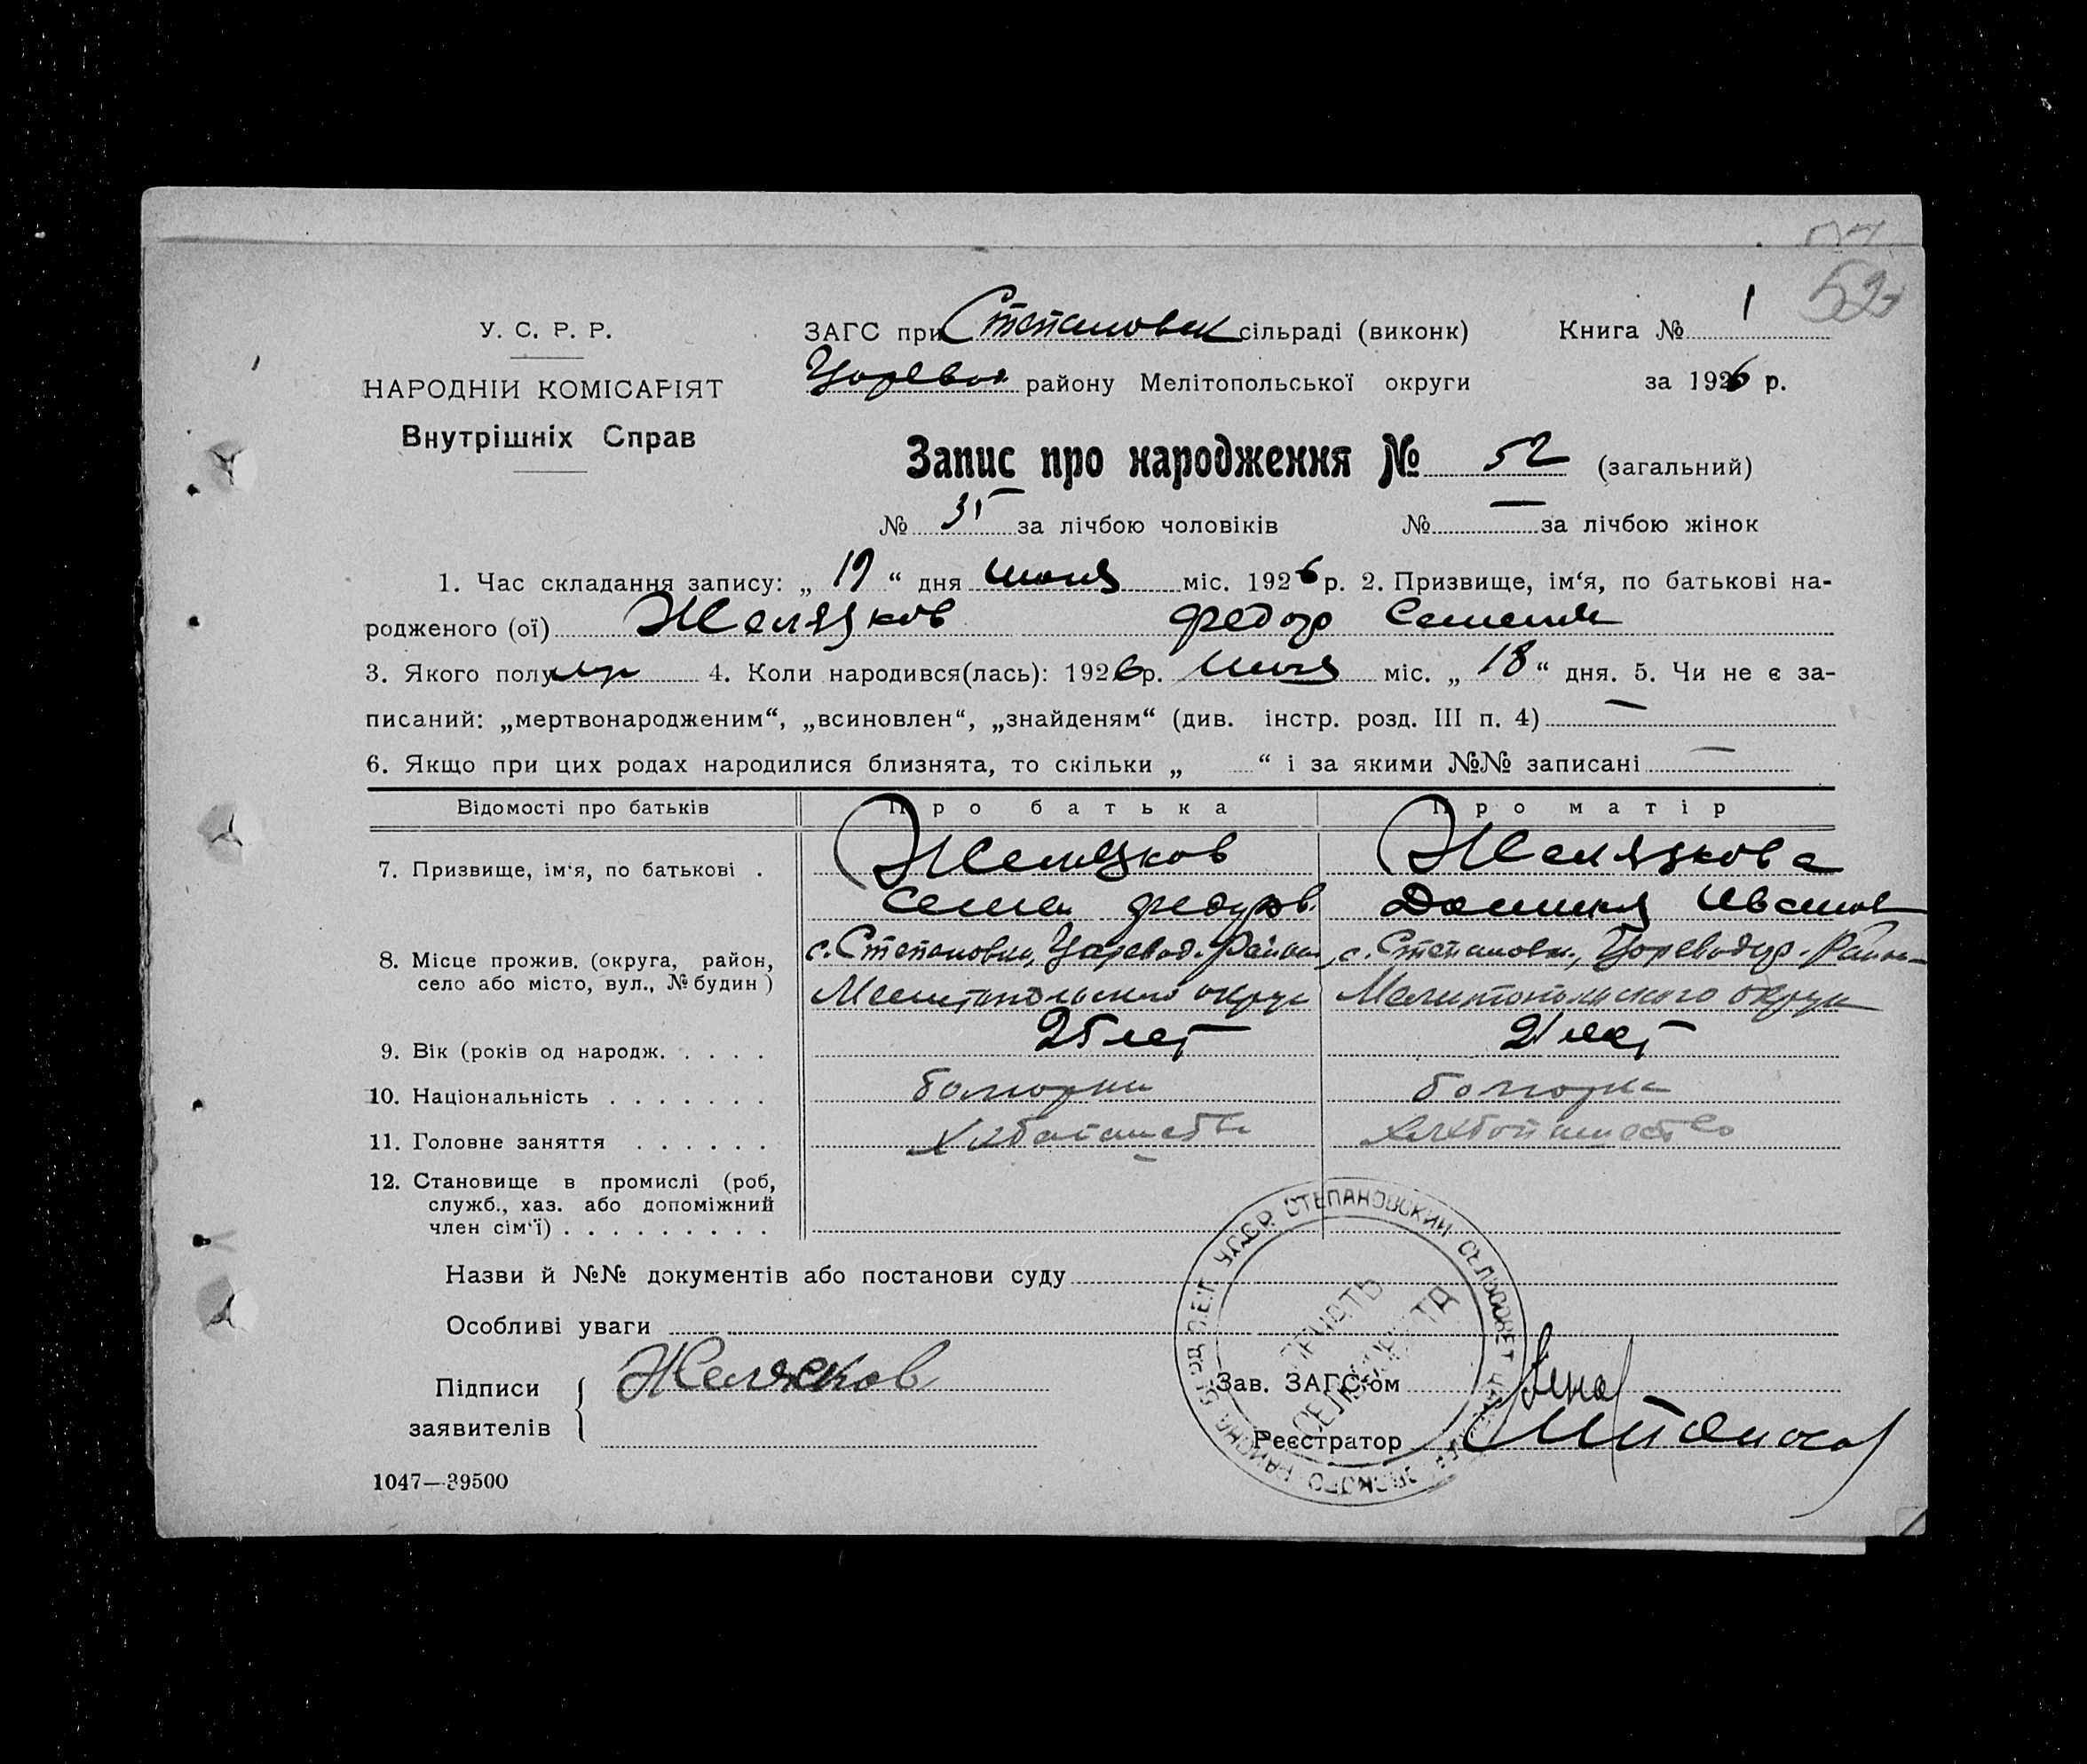 52
У. С. Р. Р.
НАРОДНІЙ КОМІСАРІЯТ
Внутрішніх Справ
ЗАГС при Степановск сільраді (виконк) Книга № 1
Царевод району Мелітопольської округи за 1926 р.
Запис про народження № 52 (загальний)
№ 35 за лічбою чоловіків № — за лічбою жінок
1. Час складання запису: „ 19 “ дня июля міс. 1926 р. 2. Призвище, ім‘я, по батькові на-
родженого (ої) Желязков Федор Семенов
3. Якого полу муж 4. Коли народився(лась): 1926 р. июля міс. „ 18 “ дня. 5. Чи не є за-
писаний: „мертвонародженим“, „всиновлен“, „знайденям“ (див. інстр. розд. III п. 4) —
6. Якщо при цих родах народилися близнята, то скільки „ “ і за якими №№ записані —
Відомості про батьків Про батька Про матір
7. Призвище, ім‘я, по батькові . Желязков Желязкова
Семен Федоров. Домникя Иванов
8. Місце прожив. (округа, район, с. Степановки, Царевод. Район с. Степановки, Цареводар. Район
село або місто, вул., № будин ) Мелитопольского округа Мелитопольского округа
9. Вік (років од народж. . . . . 25 лет 21 лет
10. Національність . . . . . . . болгарин болгарка
11. Головне заняття . . . . . . хлебопашество хлебопашество
12. Становище в промислі (роб,
служб., хаз. або допоміжний
член сім‘ї) . . . . . . . . .
Назви й №№ документів або постанови суду
Особливі уваги
Підписи Желязков Зав. ЗАГС‘ом
заявителів Реєстратор
У.С.С.Р. СТЕПАНОВСКИЙ СЕЛЬСОВЕТ
ПЕЧАТЬ
1047—39500